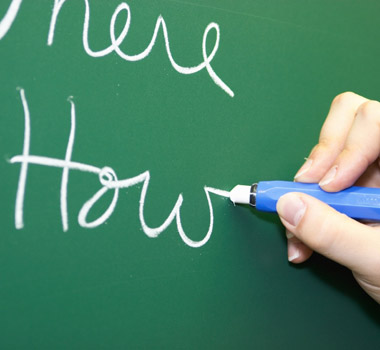 Where
How